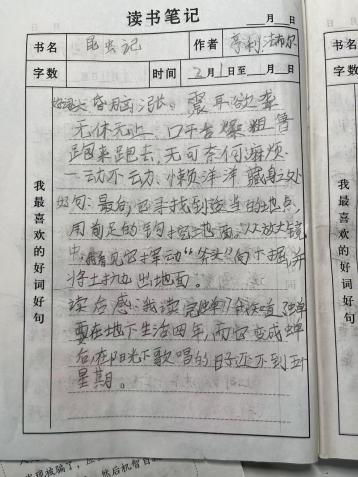 读书笔记
月 日
书名 昆虫记 作者 亨利·法布尔
字数 时间 2月1日至 月 日
我最喜欢的好词好句
好词:头昏脑涨。震耳欲聋
无休无止、口干舌燥粗管
跑来跑去、无可奈何麻烦
一动不动、懒洋洋藏身之处
好句:最后,它寻找到适当的地点,
用前足的钩挖掘地面。从放大镜
中,我看见它挥动“斧头”向下掘,并
将土抛出地面。
读后感:我读完蝉
要在地下生活四年,而它变成蝉
后,在阳光下歌唱的日子还不到五个
星期。
书名
字数
我最喜欢的好词好句